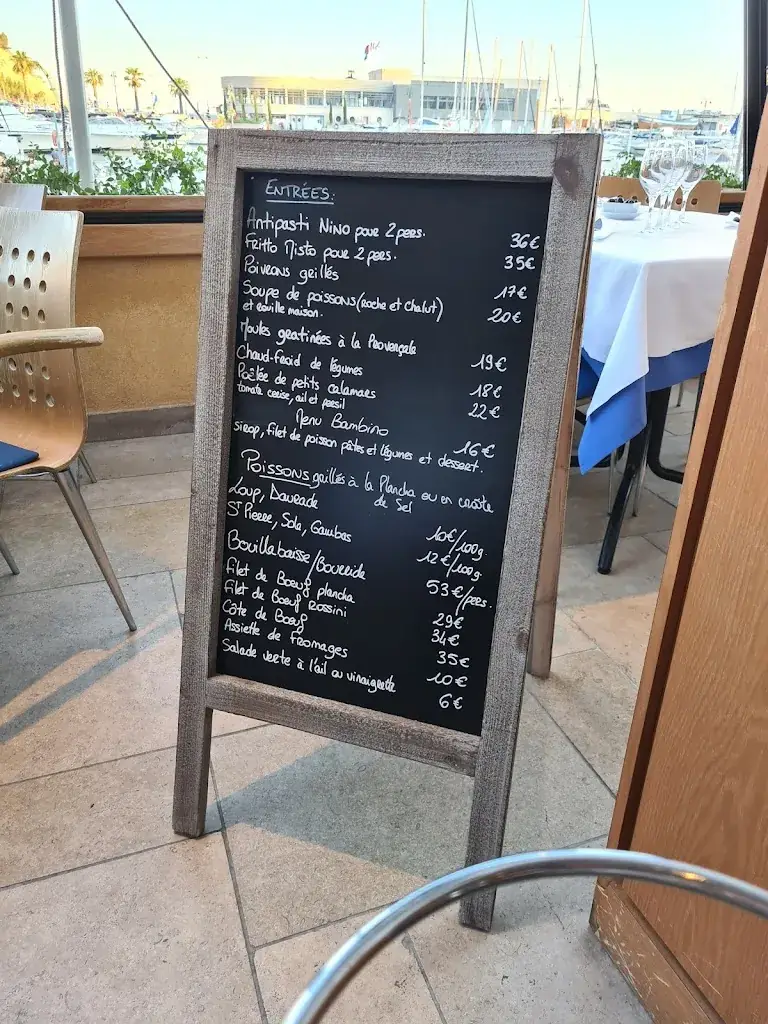 ENTRÉES:
Antipasti Nino pour 2 pers. 36€
Fritto Misto pour 2 pers. 35€
Poivrons grillés 17€
Soupe de poissons (roche et chalut) 20€
et rouille maison.
Moules gratinées à la Provençale 19€
Chaud-froid de légumes 18€
Poêlée de petits calamars 22€
tomate cerise, ail et persil
Menu Bambino 16€
sirop, filet de poisson pâtes et légumes et dessert.
Poissons grillés à la Plancha ou en croûte
de Sel
Loup, Daurade 10€/100g
St Pierre, Sole, Gambas 12€/100g.
Bouillabaisse/Bourride 53€/pers.
Filet de Boeuf plancha 29€
Filet de Boeuf Rossini 34€
Côte de Boeuf 35€
Assiette de fromages 10€
Salade verte à l'ail ou vinaigrette 6€